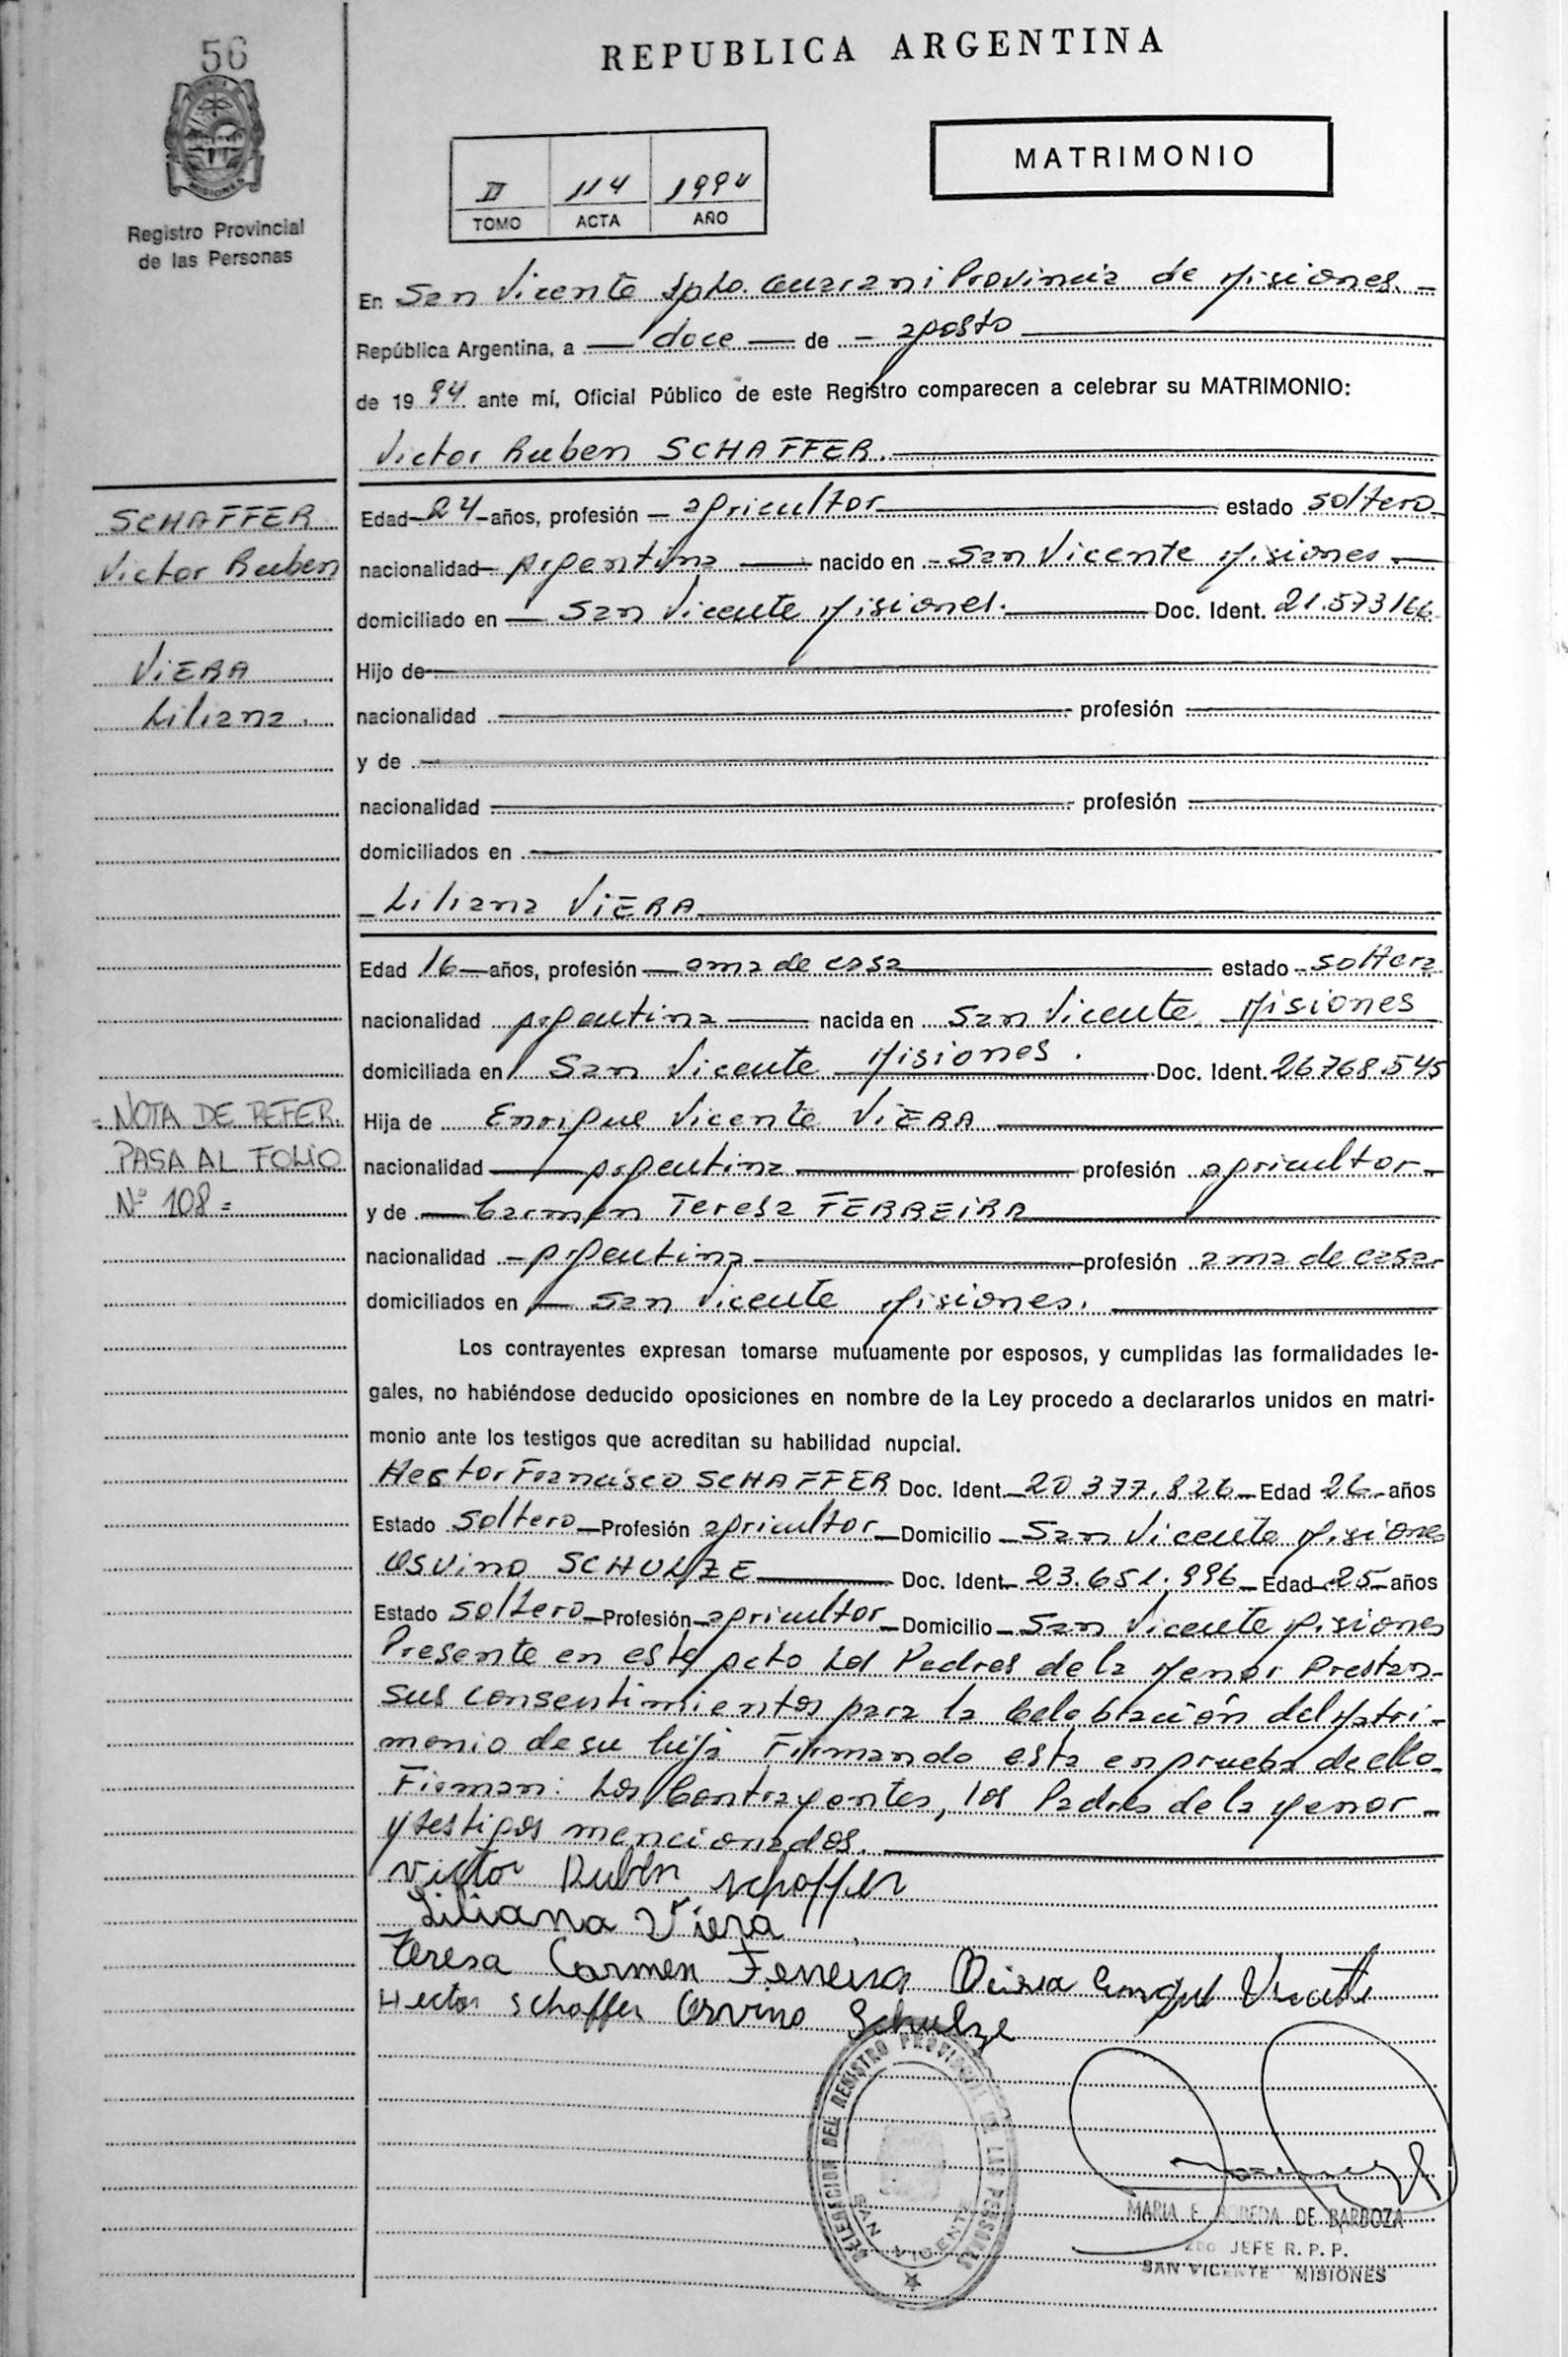 56
REPUBLICA ARGENTINA
MATRIMONIO
II 114 1994
TOMO ACTA AÑO
MISIONES
Registro Provincial
de las Personas
En San Vicente Dpto. Guarani Provincia de Misiones.
República Argentina, a doce de agosto
de 1994 ante mí, Oficial Público de este Registro comparecen a celebrar su MATRIMONIO:
Victor Ruben SCHAFFER.
SCHAFFER
Victor Ruben
VIERA
Liliana.
Edad 24 años, profesión agricultor estado soltero
nacionalidad Argentina nacido en San Vicente Misiones
domiciliado en San Vicente Misiones. Doc. Ident. 21.573166
Hijo de
nacionalidad profesión
y de
nacionalidad profesión
domiciliados en
Liliana VIERA
Edad 16 años, profesión ama de casa estado soltera
nacionalidad Argentina nacida en San Vicente Misiones
domiciliada en San Vicente Misiones. Doc. Ident. 26768.545
= NOTA DE REFER.
PASA AL FOLIO
Nº 108 =
Hija de Enrique Vicente VIERA
nacionalidad Argentina profesión agricultor
y de Carmen Teresa FERREIRA
nacionalidad Argentina profesión ama de casa
domiciliados en San Vicente Misiones.
Los contrayentes expresan tomarse mutuamente por esposos, y cumplidas las formalidades le-
gales, no habiéndose deducido oposiciones en nombre de la Ley procedo a declararlos unidos en matri-
monio ante los testigos que acreditan su habilidad nupcial.
Hector Francisco SCHAFFER Doc. Ident. 20.377.826 Edad 26 años
Estado soltero Profesión agricultor Domicilio San Vicente Misiones
Osvino SCHULZE Doc. Ident. 23.651.996 Edad 25 años
Estado soltero Profesión agricultor Domicilio San Vicente Misiones
Presente en este Acto Los Padres de la Menor Prestan
sus consentimientos para la Celebración del Matri-
monio de su hija Firmando esta en prueba de ello.
Firman: Los Contrayentes, los Padres de la Menor
y testigos mencionados.
Victor Rubén Schaffer
Liliana Viera
Teresa Carmen Ferreira Vicente
Hector Schaffer Osvino Schulze
DELEGACION DEL REGISTRO PROVINCIAL DE LAS PERSONAS
SAN VICENTE
MARIA E. DE BARBOZA
2DO JEFE R. P. P.
SAN VICENTE MISIONES